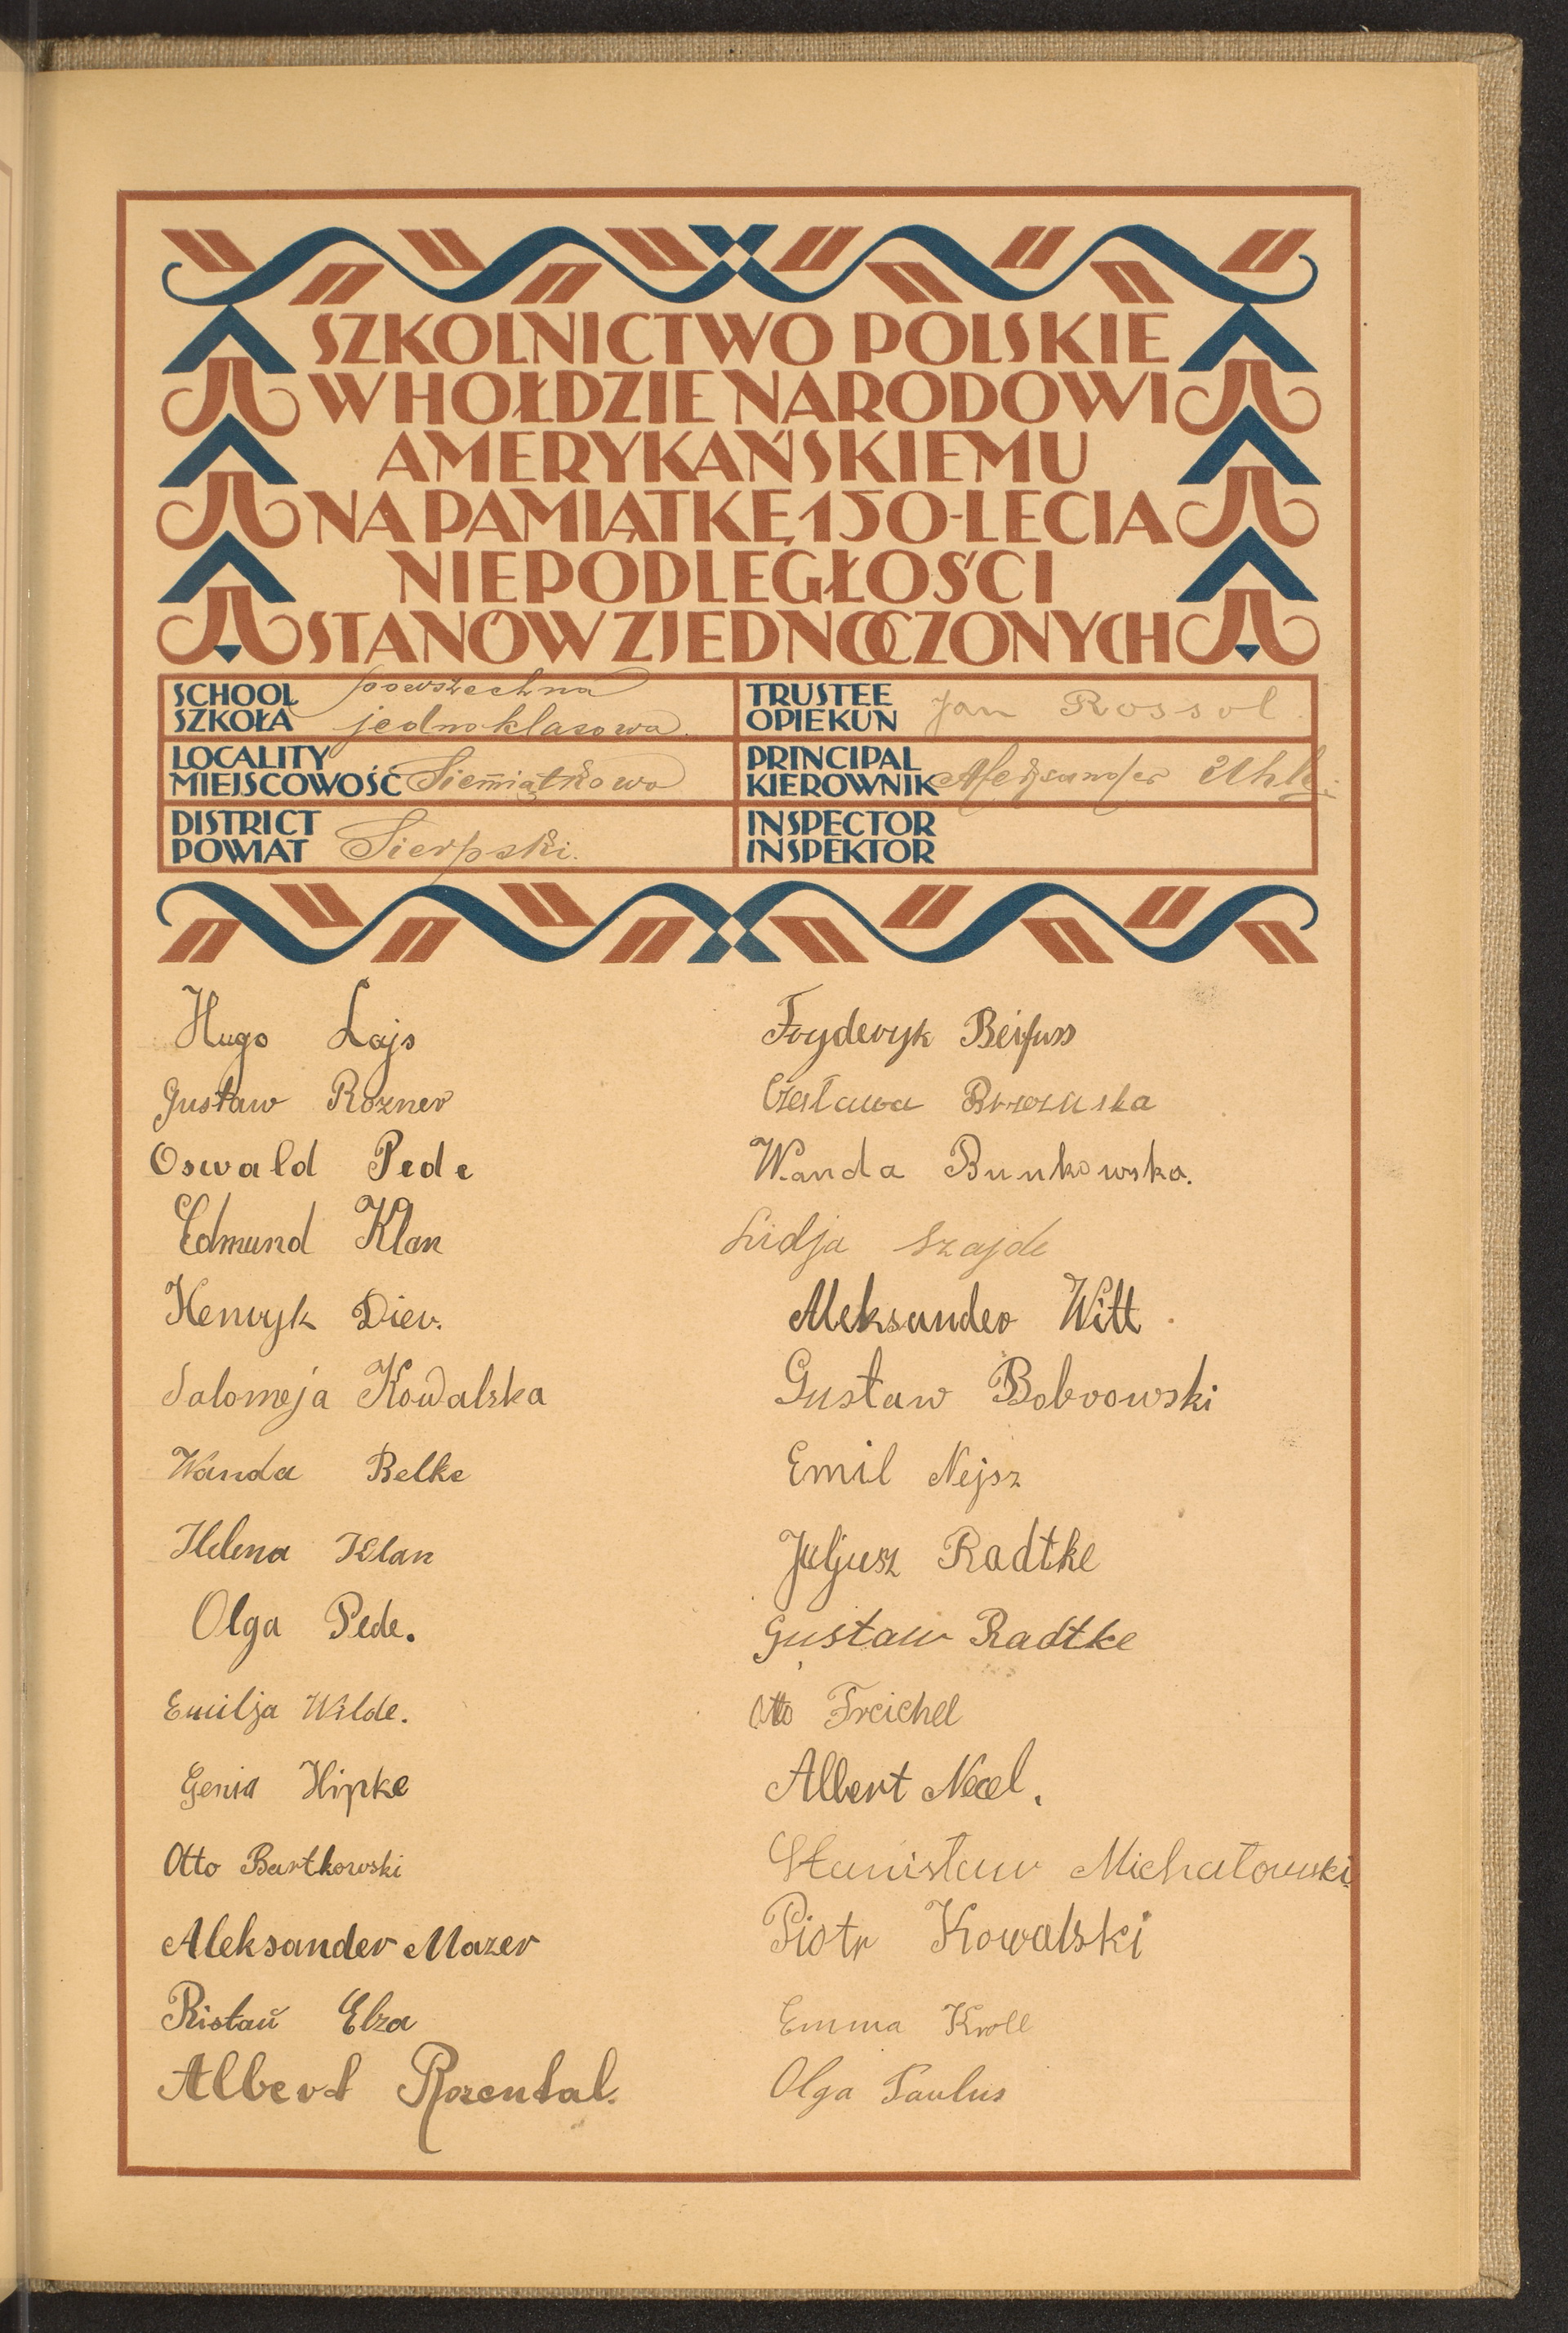 SZKOLNICTWO POLSKIE
W HOŁDZIE NARODOWI
AMERYKAŃSKIEMU
NA PAMIĄTKĘ 150-LECIA
NIEPODLEGŁOŚCI
STANÓW ZJEDNOCZONYCH
SCHOOL
SZKOŁA
powszechna
jednoklasowa.
TRUSTEE
OPIEKUN
Jan Rossol
LOCALITY
MIEJSCOWOŚĆ
Siemiątkowo
PRINCIPAL
KIEROWNIK
Aleksander
DISTRICT
POWIAT
Sierpski.
INSPECTOR
INSPEKTOR
Hugo Lajs
Gustaw Rozner
Oswald Pede
Edmund Klan
Henryk Dier.
Salomeja Kowalska
Wanda Belke
Helena Klan
Olga Pede.
Emilja Wilde.
Genia Hipke
Otto Bartkowski
Aleksander Mazer
Ristaŭ Elza
Albert Rozental.
Fryderyk Beifuss
Czesława Brzozuska
Wanda Bunkowska.
Lidja Szajde
Aleksander Witt
Gustaw Bobrowski
Emil Nejsz
Juljusz Radtke
Gustaw Radtke
Otto Freichel
Albert Necel.
Stanisław Michałowski
Piotr Kowalski
Emma Kroll
Olga Paulus